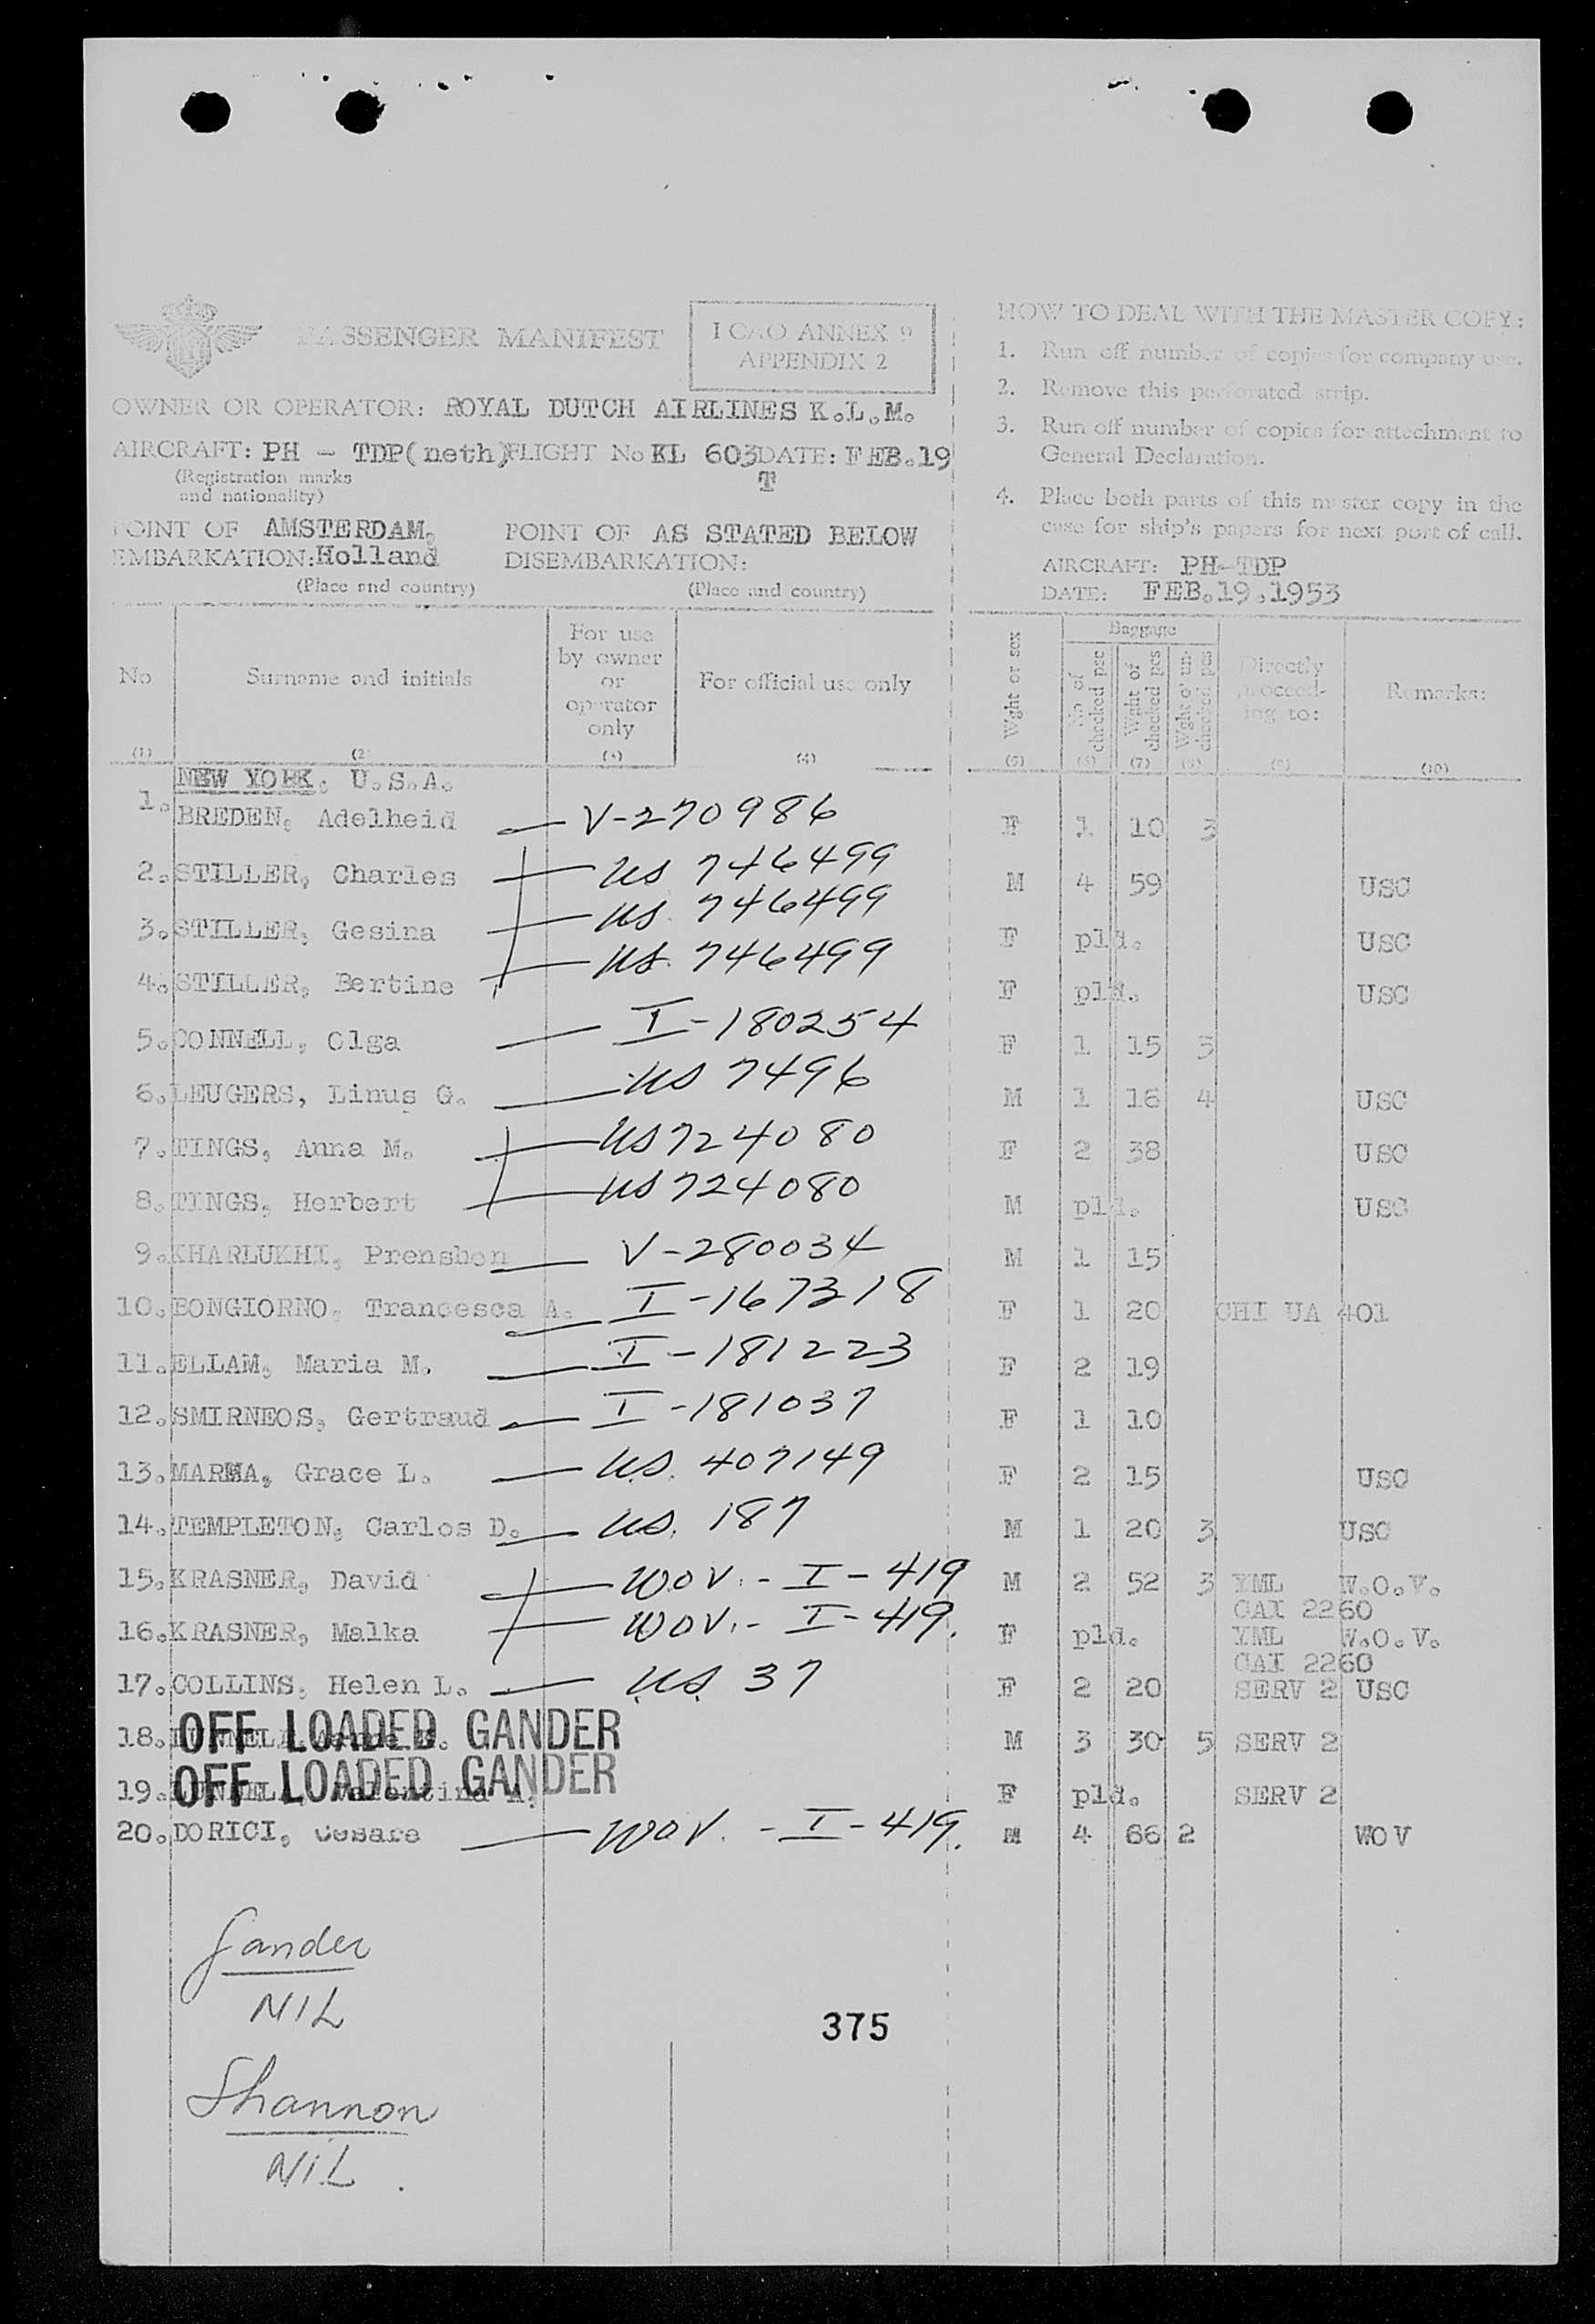 PASSENGER MANIFEST
ICAO ANNEX 9
APPENDIX 2
OWNER OR OPERATOR: ROYAL DUTCH AIRLINES K.L.M.
AIRCRAFT: PH - TDP(neth) FLIGHT No KL 603 DATE: FEB.19
T
(Registration marks
and nationality)
POINT OF AMSTERDAM, POINT OF AS STATED BELOW
EMBARKATION: Holland DISEMBARKATION:
(Place and country) (Place and country)
HOW TO DEAL WITH THE MASTER COPY:
1. Run off number of copies for company use.
2. Remove this perforated strip.
3. Run off number of copies for attachment to
General Declaration.
4. Place both parts of this master copy in the
case for ship's papers for next port of call.
AIRCRAFT: PH-TDP
DATE: FEB.19.1953
No Surname and initials For use by owner or operator only For official use only Wght or sex Baggage No of checked pse Wght of checked pcs Wght of un- checked pcs Directly proceed- ing to: Remarks:
(1) (2 (3) (4) (5) (6) (7) (8) (9) (10)
NEW YORK. U.S.A.
1. BREDEN, Adelheid V-270986 F 1 10 3
2. STILLER, Charles US 746499 M 4 59 USC
3. STILLER, Gesina US. 746499 F pld. USC
4. STILLER, Bertine US. 746499 F pld. USC
5. CONNELL, Olga I-180254 F 1 15 3
6. LEUGERS, Linus G. US 7496 M 1 16 4 USC
7. TINGS, Anna M. US 724080 F 2 38 USC
8. TINGS, Herbert US 724080 M pld. USC
9. KHARLUKHI, Prenshon V-280034 M 1 15
10. BONGIORNO, Trancesca A. I-167318 F 1 20 CHI UA 401
11. ELLAM, Maria M. I-181223 F 2 19
12. SMIRNEOS, Gertraud I-181037 F 1 10
13. MARMA, Grace L. U.S. 407149 F 2 15 USC
14. TEMPLETON, Carlos D. US. 187 M 1 20 3 USC
15. KRASNER, David WOV. - I - 419 M 2 52 3 YML W.O.V.
CAI 2260
16. KRASNER, Malka WOV. - I - 419. F pld. YML W.O.V.
CAI 2260
17. COLLINS, Helen L. U.S. 37 F 2 20 SERV 2 USC
18. OFF LOADED GANDER M 3 30 5 SERV 2
19. OFF LOADED GANDER F pld. SERV 2
20. DORICI, Cesare WOV. - I - 419. M 4 66 2 WOV
Gander
NIL
375
Shannon
NIL.